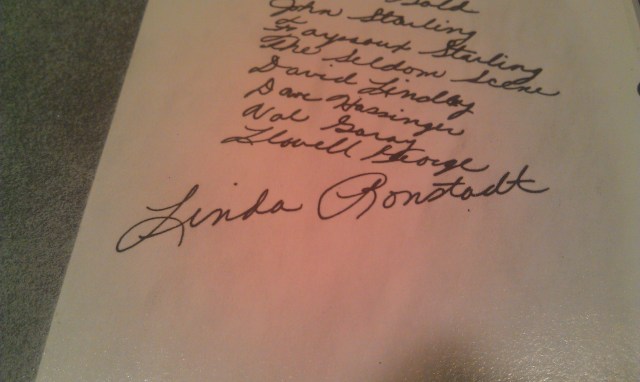 Gold
John Starling
Fayssoux Starling
The Seldom Scene
David Lindley
Dave Hassinger
Val Garay
Llowell George
Linda Ronstadt